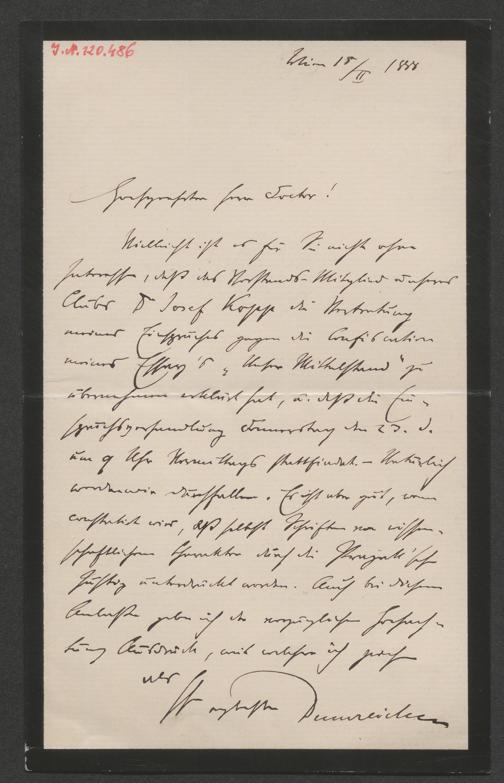 I.N. 120.486
Wien 18/II 1888
Hochgeehrter Herr Doctor!
Vielleicht ist es für Sie nicht ohne
Interesse, daß das Vorstands-Mitglied unseres
Clubs Dr Josef Kopp die Vertretung
meines Einspruches gegen die Confiscation
meines Essay's „Unser Mittelstand" zu
übernehmen erklärt hat, u. daß die Ein-
spruchsverhandlung Donnerstag den 23. d.
um 9 Uhr Vormittags stattfindet. – Natürlich
werden wir durchfallen. Es ist aber gut, wenn
constatirt wird, daß selbst Schriften von wissen-
schaftlichem Charakter durch die
Justiz unterdrückt werden. Auch bei diesem
Anlasse gebe ich der vorzüglichen Hochach-
tung Ausdruck, mit welcher ich
als
Ihr ergebenster Dumreicher